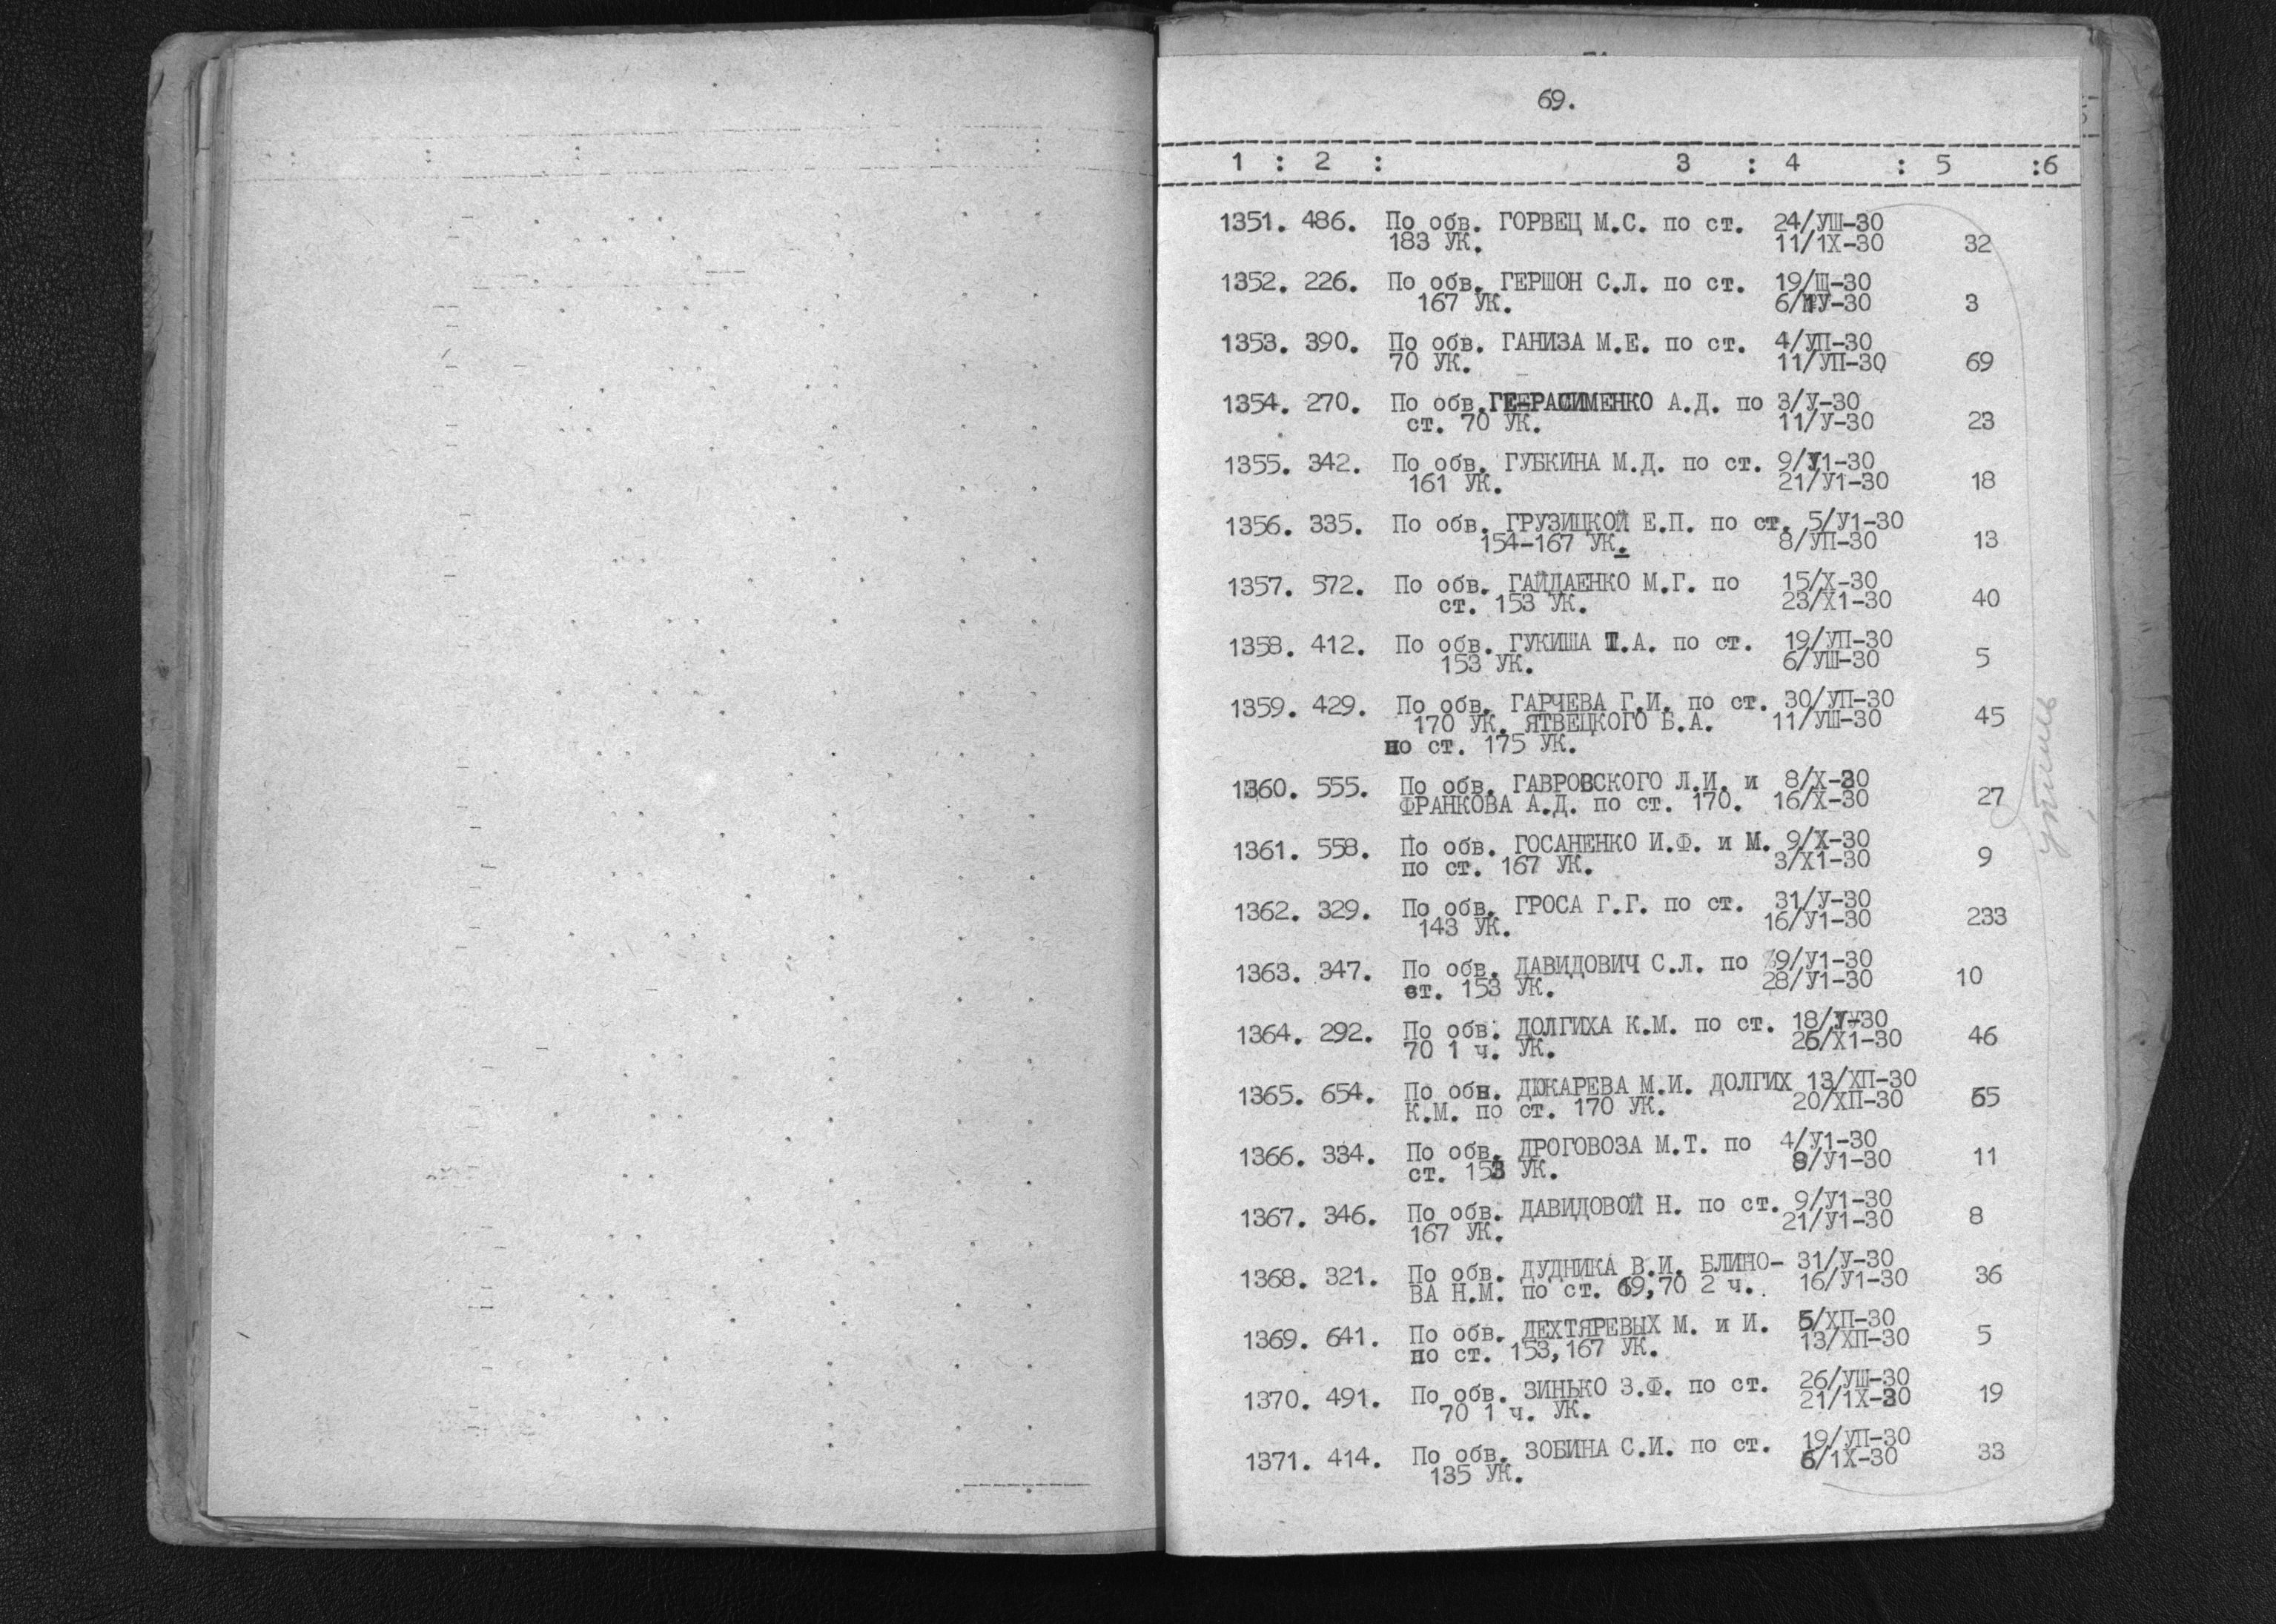 69.
1 : 2 : 3 : 4 : 5 :6
1351. 486. По обв. ГОРВЕЦ М.С. по ст. 24/УШ-30
183 УК. 11/1Х-30 32
1352. 226. По обв. ГЕРШОН С.Л. по ст. 19/Ш-30
167 УК. 6/1У-30 3
1353. 390. По обв. ГАНИЗА М.Е. по ст. 4/УП-30
70 УК. 11/УП-30 69
1354. 270. По обв.ГЕРАСИМЕНКО А.Д. по 3/У-30
ст. 70 УК. 11/У-30 23
1355. 342. По обв. ГУБКИНА М.Д. по ст. 9/У1-30
161 УК. 21/У1-30 18
1356. 335. По обв. ГРУЗИЦКОЙ Е.П. по ст. 5/У1-30
154-167 УК. 8/УП-30 13
1357. 572. По обв. ГАЙДАЕНКО М.Г. по 15/Х-30
ст. 153 УК. 23/Х1-30 40
1358. 412. По обв. ГУКИША Т.А. по ст. 19/УП-30
153 УК. 6/УШ-30 5
1359. 429. По обв. ГАРЧЕВА Г.И. по ст. 30/УП-30
170 УК. ЯТВЕЦКОГО Б.А. 11/УШ-30 45
по ст. 175 УК.
1360. 555. По обв. ГАВРОВСКОГО Л.И. и 8/Х-30
ФРАНКОВА А.Д. по ст. 170. 16/Х-30 27
1361. 558. По обв. ГОСАНЕНКО И.Ф. и М. 9/Х-30
по ст. 167 УК. 3/Х1-30 9
1362. 329. По обв. ГРОСА Г.Г. по ст. 31/У-30
143 УК. 16/У1-30 233
1363. 347. По обв. ДАВИДОВИЧ С.Л. по 9/У1-30
ст. 153 УК. 28/У1-30 10
1364. 292. По обв. ДОЛГИХА К.М. по ст. 18/У-30
70 1 ч. УК. 26/Х1-30 46
1365. 654. По обв. ДЮКАРЕВА М.И. ДОЛГИХ 13/ХП-30
К.М. по ст. 170 УК. 20/ХП-30 65
1366. 334. По обв. ДРОГОВОЗА М.Т. по 4/У1-30
ст. 153 УК. 8/У1-30 11
1367. 346. По обв. ДАВИДОВОЙ Н. по ст. 9/У1-30
167 УК. 21/У1-30 8
1368. 321. По обв. ДУДНИКА В.И. БЛИНО- 31/У-30
ВА Н.М. по ст. 69,70 2 ч. 16/У1-30 36
1369. 641. По обв. ДЕХТЯРЕВЫХ М. и И. 5/ХП-30
по ст. 153,167 УК. 13/ХП-30 5
1370. 491. По обв. ЗИНЬКО З.Ф. по ст. 26/УШ-30
70 1 ч. УК. 21/1Х-30 19
1371. 414. По обв. ЗОБИНА С.И. по ст. 19/УП-30
135 УК. 6/1Х-30 33